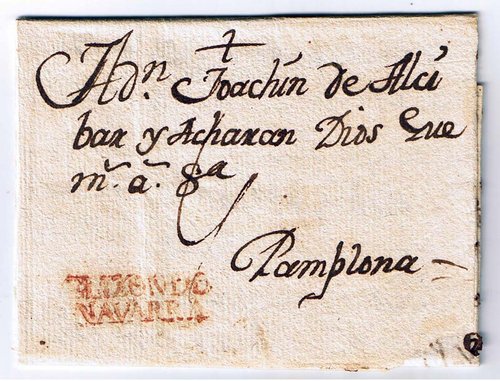 +
A dn. Joachin de Alci
bar y Acharan Dios Gue
ms. as. &a
Pamplona
ELIZONDO
NAVARRA